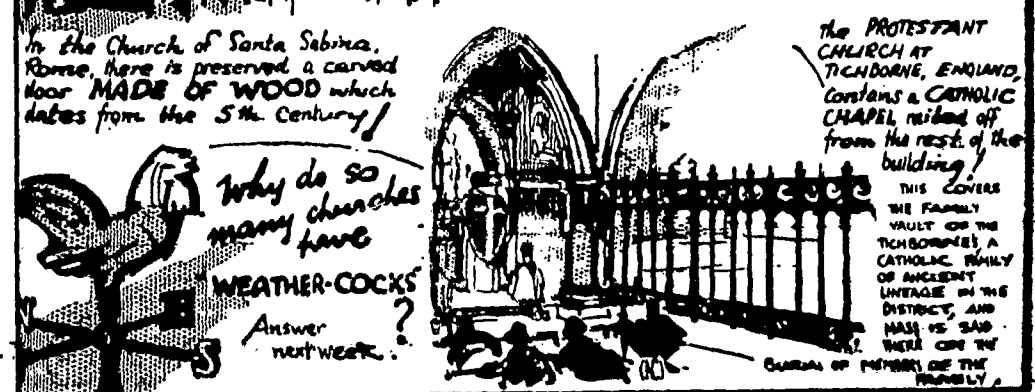 In the Church of Santa Sabina,
Rome, there is preserved a carved
door MADE OF WOOD which
dates from the 5th Century!
Why do so
many churches
have
"WEATHER-COCKS"
?
Answer
next week.
the PROTESTANT
CHURCH AT
TICHBORNE, ENGLAND,
Contains a CATHOLIC
CHAPEL railed off
from the rest of the
building!
THIS COVERS
THE FAMILY
VAULT OF THE
TICHBORNES, A
CATHOLIC FAMILY
OF ANCIENT
LINEAGE IN THE
DISTRICT, AND
MASS IS SAID
THERE ON THE
BURIAL OF MEMBERS OF THE
FAMILY.
S